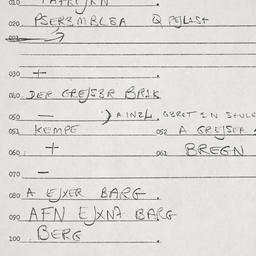 010
020 PSERBMBLSA Q PEJLIST
021
030 +
040 DER GREJSER BRIK
050 — ) AINZL.
051 KEMPE 052 A GREJSER A
060 + 061 BREGN
070 —
080 A EJXER BARG
090 AFN EJXN7 BARG
100 BERG